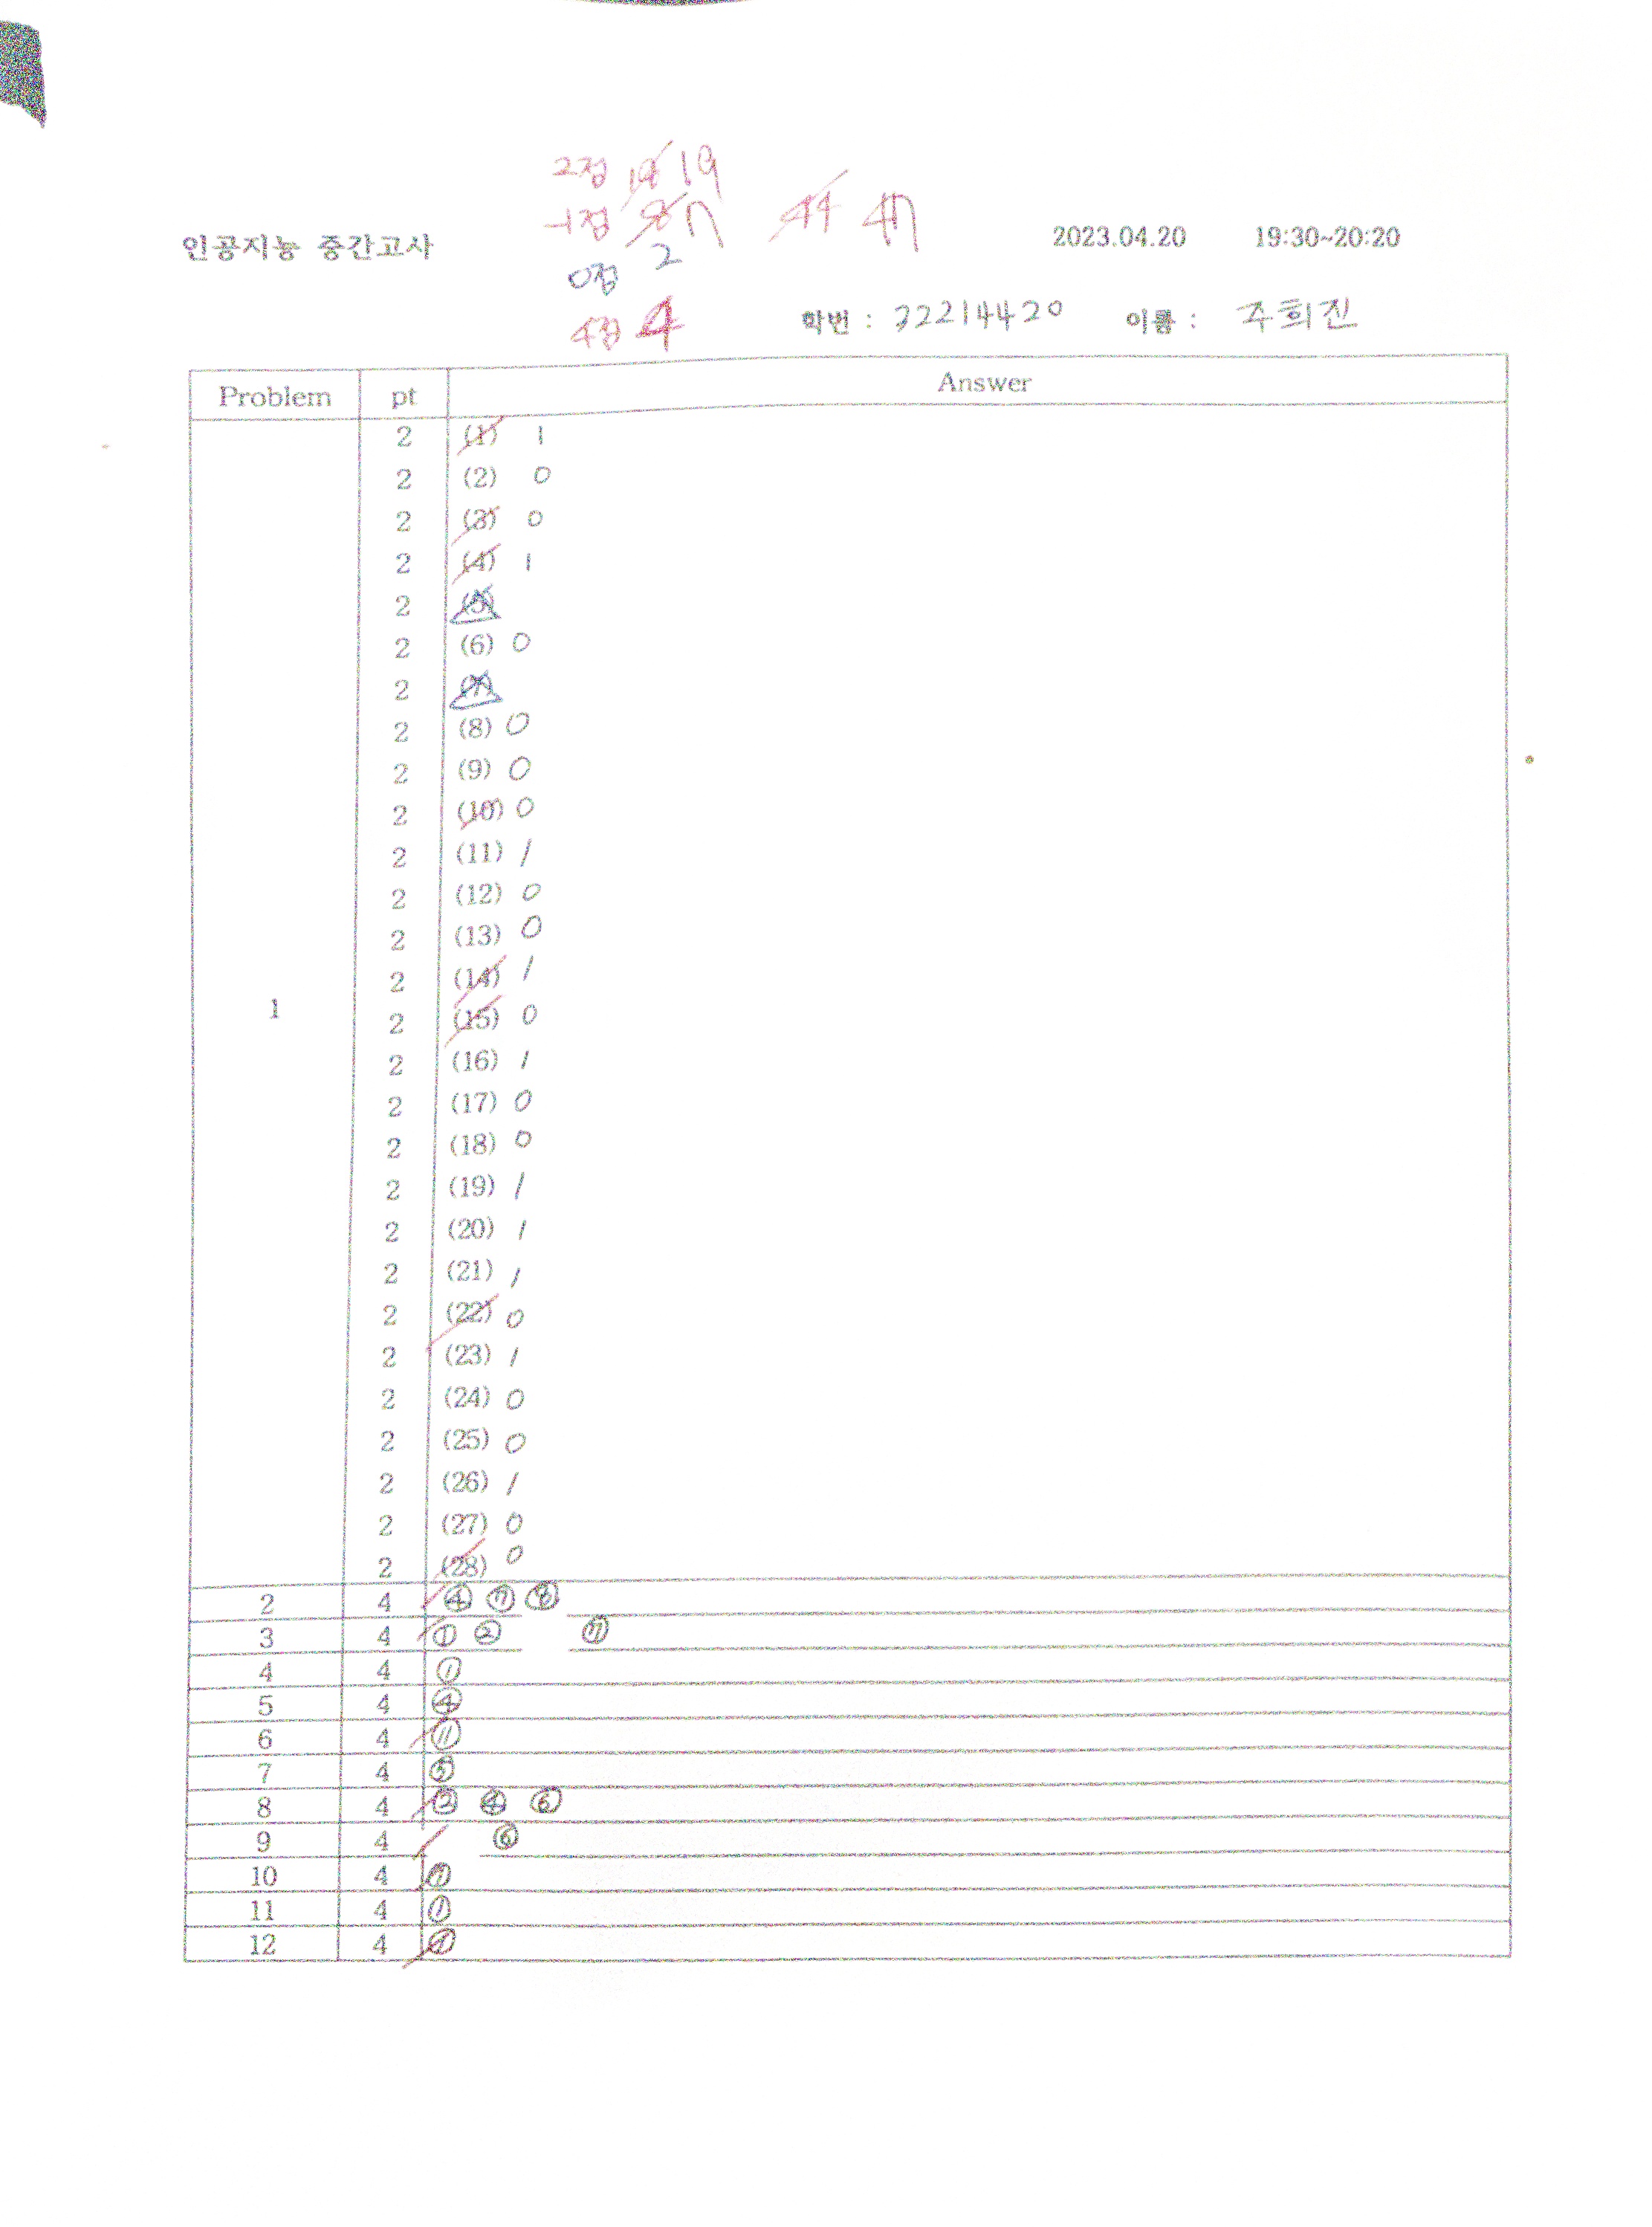 2점 18 19
-1점 8 7 44 47
인공지능 중간고사 2023.04.20 19:30~20:20
0점 2
4점 4 학번 : 32214420 이름 : 주희진
Problem pt Answer
2 (1) 1
2 (2) 0
2 (3) 0
2 (4) 1
2 (5)
2 (6) 0
2 (7)
2 (8) 0
2 (9) 0
2 (10) 0
2 (11) 1
2 (12) 0
2 (13) 0
2 (14) 1
1 2 (15) 0
2 (16) 1
2 (17) 0
2 (18) 0
2 (19) 1
2 (20) 1
2 (21) 1
2 (22) 0
2 (23) 1
2 (24) 0
2 (25) 0
2 (26) 1
2 (27) 0
2 (28) 0
2 4 ④ ⑦
3 4 ① ②
4 4 ①
5 4 ④
6 4 ⑪
7 4 ⑤
8 4 ④ ⑥
9 4 ⑥
10 4
11 4 ①
12 4